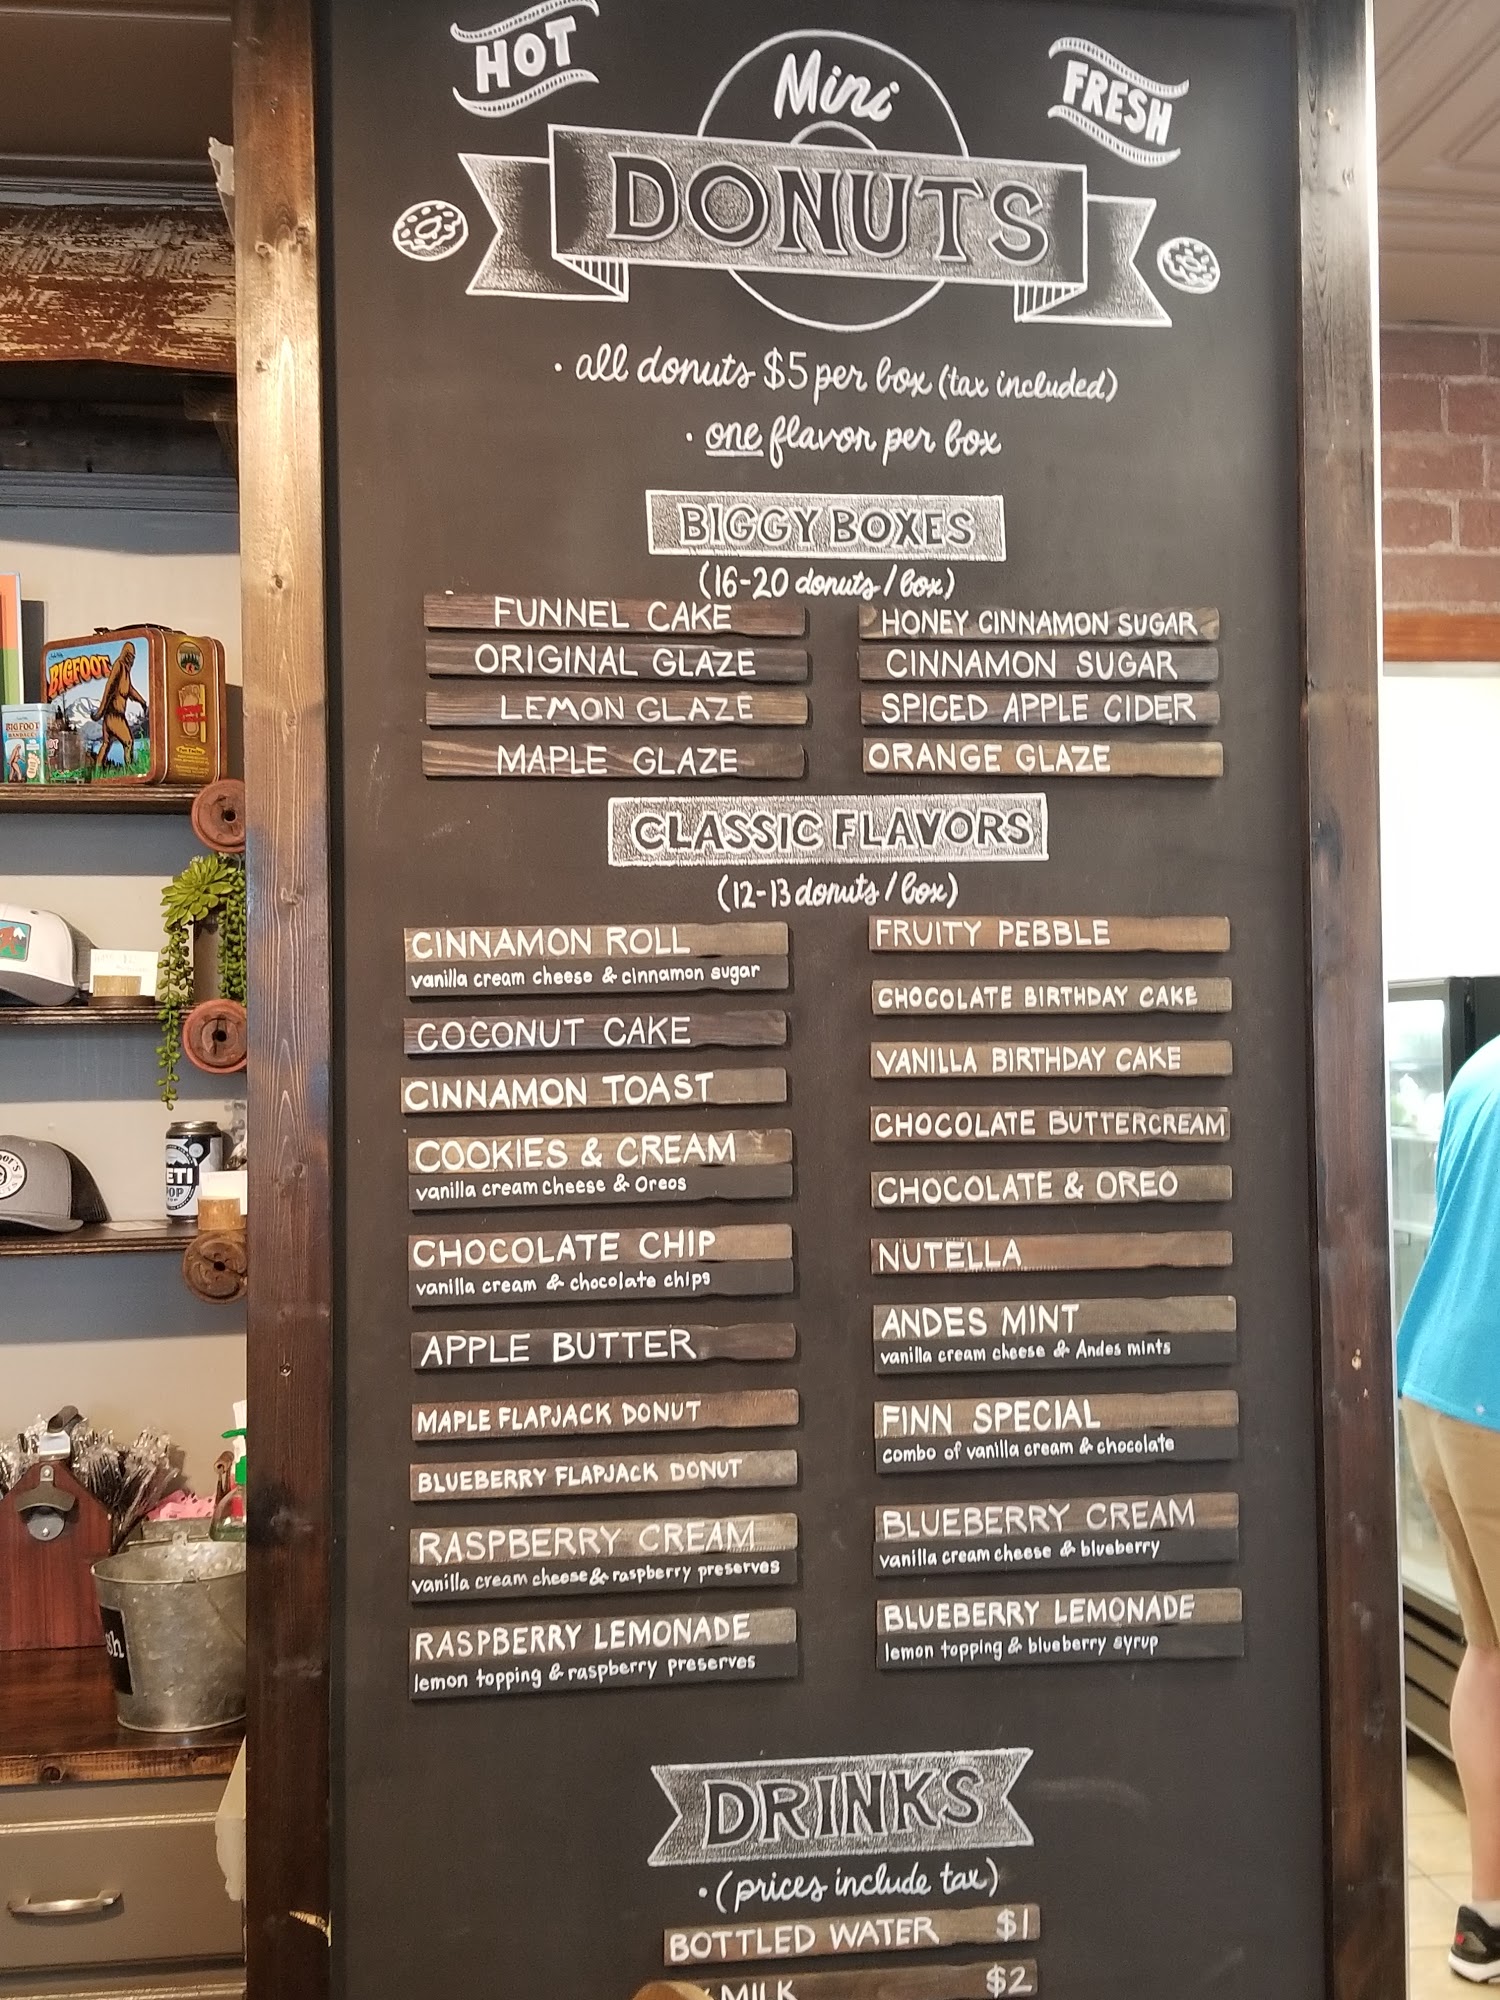 HOT
Mini
FRESH
DONUTS
· all donuts $5 per box (tax included)
· one flavor per box
BIGGY BOXES
(16-20 donuts / box)
FUNNEL CAKE
ORIGINAL GLAZE
LEMON GLAZE
MAPLE GLAZE
HONEY CINNAMON SUGAR
CINNAMON SUGAR
SPICED APPLE CIDER
ORANGE GLAZE
CLASSIC FLAVORS
(12-13 donuts / box)
CINNAMON ROLL
vanilla cream cheese & cinnamon sugar
COCONUT CAKE
CINNAMON TOAST
COOKIES & CREAM
vanilla cream cheese & Oreos
CHOCOLATE CHIP
vanilla cream & chocolate chips
APPLE BUTTER
MAPLE FLAPJACK DONUT
BLUEBERRY FLAPJACK DONUT
RASPBERRY CREAM
vanilla cream cheese & raspberry preserves
RASPBERRY LEMONADE
lemon topping & raspberry preserves
FRUITY PEBBLE
CHOCOLATE BIRTHDAY CAKE
VANILLA BIRTHDAY CAKE
CHOCOLATE BUTTERCREAM
CHOCOLATE & OREO
NUTELLA
ANDES MINT
vanilla cream cheese & Andes mints
FINN SPECIAL
combo of vanilla cream & chocolate
BLUEBERRY CREAM
vanilla cream cheese & blueberry
BLUEBERRY LEMONADE
lemon topping & blueberry syrup
DRINKS
· (prices include tax)
BOTTLED WATER $1
MILK $2
BIGFOOT
BIGFOOT
POP